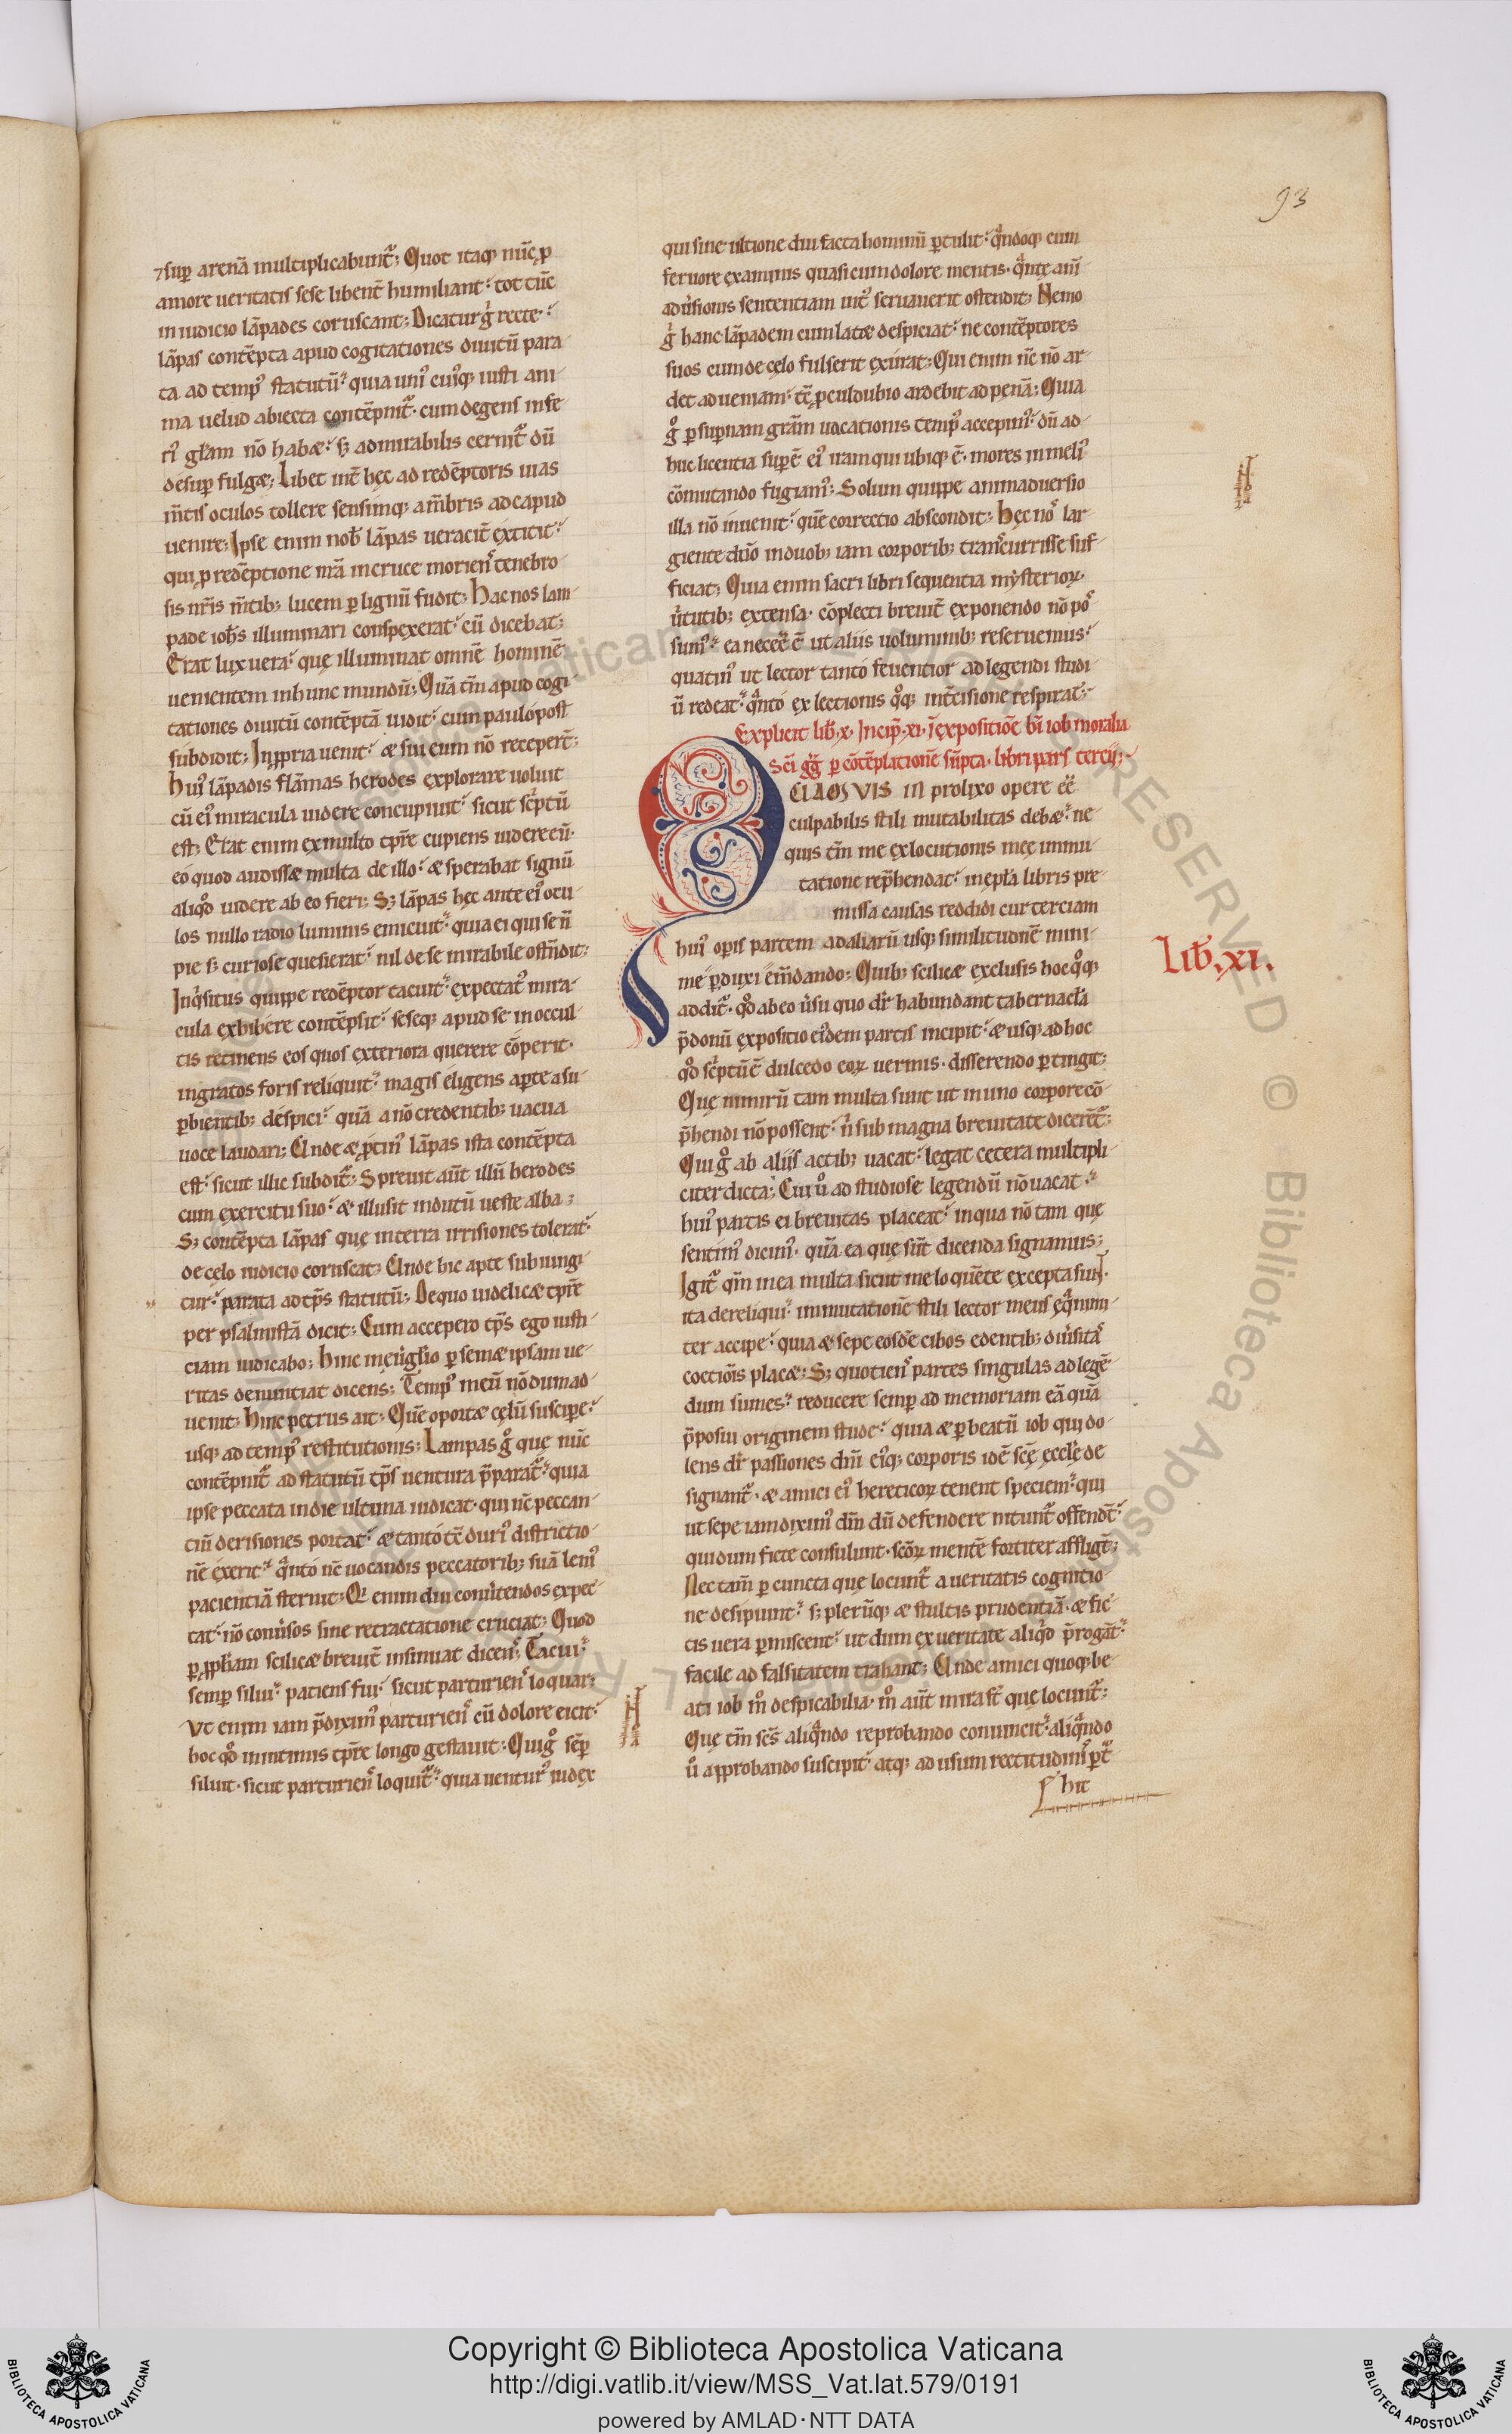 93
⁊ sup̱ arenā multiplicabunt᷑; Quot itaq; nūc p̱
amore ueritatis sese libent̄ humiliant: tot tūc
in iudicio lāpades coruscant; Dicatur g̊ recte:
lāpas contēpta apud cogitationes diuitū para-
ta ad temp᷒ statutū: quia uni᷒ cui᷒q; iusti ani-
ma uelud abiecta contēpnit᷑. cum degens infe-
ri᷒ gl̄am nō habæ: s; admirabilis cernit᷑ dū
desup̱ fulgæ; Libet int̄ hęc ad redēptoris uias
m̄tis oculos tollere sensimq; a m̄bris ad capud
uenire; Ipse enim nob̄ lāpas ueracit̄ extitit:
qui p̱ redēptione n̄ra in cruce morien᷒ tenebro-
sis n̄ris m̄tib; lucem p̱ lignū fudit; Hac nos lam-
pade ioh̄s illuminari conspexerat: cū dicebat;
Erat lux uera: que illuminat omnē hominē
uenientem in hunc mundū; Quā tm̄ apud cogi-
tationes diuitū contēptā uidit: cum paulo post
subdidit; In p̱pria uenit: æ sui eum nō recepert̄;
Hui᷒ lāpadis flāmas herodes explorare uoluit
cū ei᷒ miracula uidere concupiuit: sicut sc̄ptū
est; Erat enim ex multo tp̄re cupiens uidere eū.
eo quod audissæ multa de illo: æ sperabat signū
aliqd̊ uidere ab eo fieri; S; lāpas hęc ante ei᷒ ocu-
los nullo radio luminis emicuit: quia ei qui se n̄
pie s; curiose quesierat: nil de se mirabile ostn̄dit;
Inq̊situs quippe redēptor tacuit: expectat᷒ mira-
cula exhibere contēpsit: seseq; apud se in occul-
tis retinens eos quos exteriora querere cōperit.
ingratos foris reliquit: magis eligens ap̱te a su-
p̱bientib; despici: quā a nō credentib; uacua
uoce laudari; Unde æ p̱tin᷒ lāpas ista contēpta
est: sicut illic subdit᷑; Spreuit aūt illū herodes
cum exercitu suo: æ illusit indutū ueste alba;
S; contēpta lāpas que in terra irrisiones tolerat:
de cęlo iudicio coruscat; Unde hic apte subiungi-
tur: parata ad tp̄s statutū; De quo uidelicæ tp̄re
per psalmistā dicit; Cum accepero tp̄s ego iusti-
ciam iudicabo; Hinc in eu̅glio p̱ semæipsam ue-
ritas denuntiat dicens; Temp᷒ meū nōdum ad-
uenit; Hinc petrus ait; Quē oportæ cęlū suscipe:
usq; ad temp᷒ restitutionis; Lampas g̊ que nūc
contēpnit᷑ ad statutū tp̄s uentura p̄parat᷑: quia
ipse peccata in die ultima iudicat. qui nc̄ peccan-
tiū derisiones portat: æ tanto tc̄ duri᷒ districtio-
nē exerit: q̊nto nc̄ uocandis peccatorib; suā leni᷒
pacientiā sternit; Qi enim diu conu̅tendos expec-
tat: nō conu̅sos sine retractatione cruciat; Quod
p̱ p̱ph̄am scilicæ breuit̄ insinuat dicen᷒; Tacui:
semp̱ silui: patiens fui: sicut parturien᷒ loquar;
Vt enim iam p̄dixim᷒ parturien᷒ cū dolore eicit:
hoc qd̊ in intimis tp̄re longo gestauit; Qui g̊ sēp̱
siluit. sicut parturien᷒ loquit᷑: quia uentur᷒ iudex
qui sine ultione diu facta hominū p̱tulit: q̊ndoq; cum
feruore examinis quasi cum dolore mentis. q̊nte ani-
adu̅sionis sententiam int᷒ seruauerit ostendit; Nemo
g̊ hanc lāpadem cum latæ despiciat: ne contēptores
suos cum de cęlo fulserit exurat; Qui enim nc̄ nō ar-
det ad ueniam: tc̄ p̱culdubio ardebit ad penā; Quia
g̊ p̱ sup̱nam grām uocationis temp᷒ accepim᷒: dū ad-
huc licentia sup̱ē ei᷒ iram qui ubiq; ē. mores in meli᷒
cōmutando fugiam᷒; Solum quippe animaduersio
illa nō inuenit: quē correctio abscondit; Hęc nos̄ lar-
giente dn̄o in duob; iam corporib; trans̄currisse suf-
ficiat; Quia enim sacri libri sequentia mysterioꝝ.
u̅tutib; extensa. cōplecti breuit̄ exponendo nō pos-
sum᷒: ea necēē ē ut aliis uoluminib; reseruemus:
quatin᷒ ut lector tanto feuentior ad legendi studi-
ū redeat: q̊nto ex lectionis q̊q; int̄cisione respirat;
Explicit lib̄.x. Incip̄.xi. ī expositiōe b̄i iob moralia
sc̄i gg̅ p̱ cōtēplationē sūpta. libri pars tercij;
QUAMVIS in prolixo opere ēē
culpabilis stili mutabilitas debæ: ne
quis tm̄ me ex locutionis meę immu-
tatione rep̄hendat: in ep̄la libris pre-
missa causas reddidi cur terciam
hui᷒ op̱is partem ad aliarū usq; similitudinē mini-
me p̱duxi em̄dando; Quib; scilicæ exclusis hoc q̊q;
addit᷑. qd̊ ab eo u̅su quo dr̄ habundant tabernacl̄a
p̄donū expositio ei᷒dem partis incipit: æ usq; ad hoc
qd̊ sc̄ptū ē dulcedo eoꝝ uermis. disserendo p̱tingit;
Que nimirū tam multa sunt ut in uno corpore cō-
p̄hendi nō possent: n̊ sub magna breuitate dicerēt᷑;
Qui g̊ ab aliis actib; uacat: legat cetera multipli-
citer dicta; Cui u̅o ad studiose legendū nō uacat:
hui᷒ partis ei breuitas placeat: in qua nō tam que
sentim᷒ dicim᷒. quā ea que sūt dicenda signamus;
Igit᷑ qm̄ in ea multa sicut me loquēte excepta sun̄t.
ita dereliqui: immutationē stili lector meus eq̊nimi-
ter accipe: quia æ sepe eosdē cibos edentib; diu̅sitas
coctiōis placæ; S; quotien᷒ partes singulas ad legē-
dum sumes: reducere semp̱ ad memoriam eā quā
p̄posui originem stude: quia æ p̱ beatū iob qui do-
lens dr̄ passiones dn̄i ei᷒q; corporis idē scē ecclē de-
signant᷑. æ amici ei᷒ hereticoꝝ tenent speciem: qui
ut sepe iam dixim᷒ dm̄ dū defendere nitunt᷑ offendt̄:
qui dum ficte consulunt. scōꝝ mentē fortiter affligt̄;
Nec tam̄ p̱ cuncta que locunt᷑ a ueritatis cognitio-
ne desipiunt: s; plerūq; æ stultis prudentiā. æ fic-
tis uera p̱miscent: ut dum ex ueritate aliqd̊ p̄rogāt:
facile ad falsitatem trahant; Unde amici quoq; be-
ati iob m̊ despicabilia. m̊ aūt mira s̄t que locunt᷑;
Que tm̄ scs̄ aliq̊ndo reprobando conuincit: aliq̊ndo
u̅o approbando suscipit: atq; ad usum rectitudinis p̱t᷑-
hit
Lib̄.xi.
Copyright © Biblioteca Apostolica Vaticana
http://digi.vatlib.it/view/MSS_Vat.lat.579/0191
powered by AMLAD·NTT DATA
BIBLIOTECA APOSTOLICA VATICANA
BIBLIOTECA APOSTOLICA VATICANA